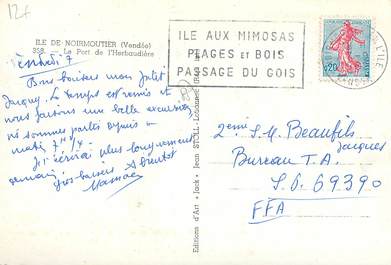 12f
ILE DE NOIRMOUTIER (Vendée)
358 - Le Port de l'Herbaudière
Vendredi 7
Bons baisers mon petit
Jacquy. Le temps est remis et
nous faisons une belle excursion,
sommes partis depuis
matin 7h 1/4
Je t'écrirai plus longuement
demain
Gros baisers A bientôt
ILE AUX MIMOSAS
PLAGES et BOIS
PASSAGE DU GOIS
0,20
Editions d'Art « Jack »
2ème S.M. Beaufils
Jacques
Bureau T.A.
S.P. 69390
FFA